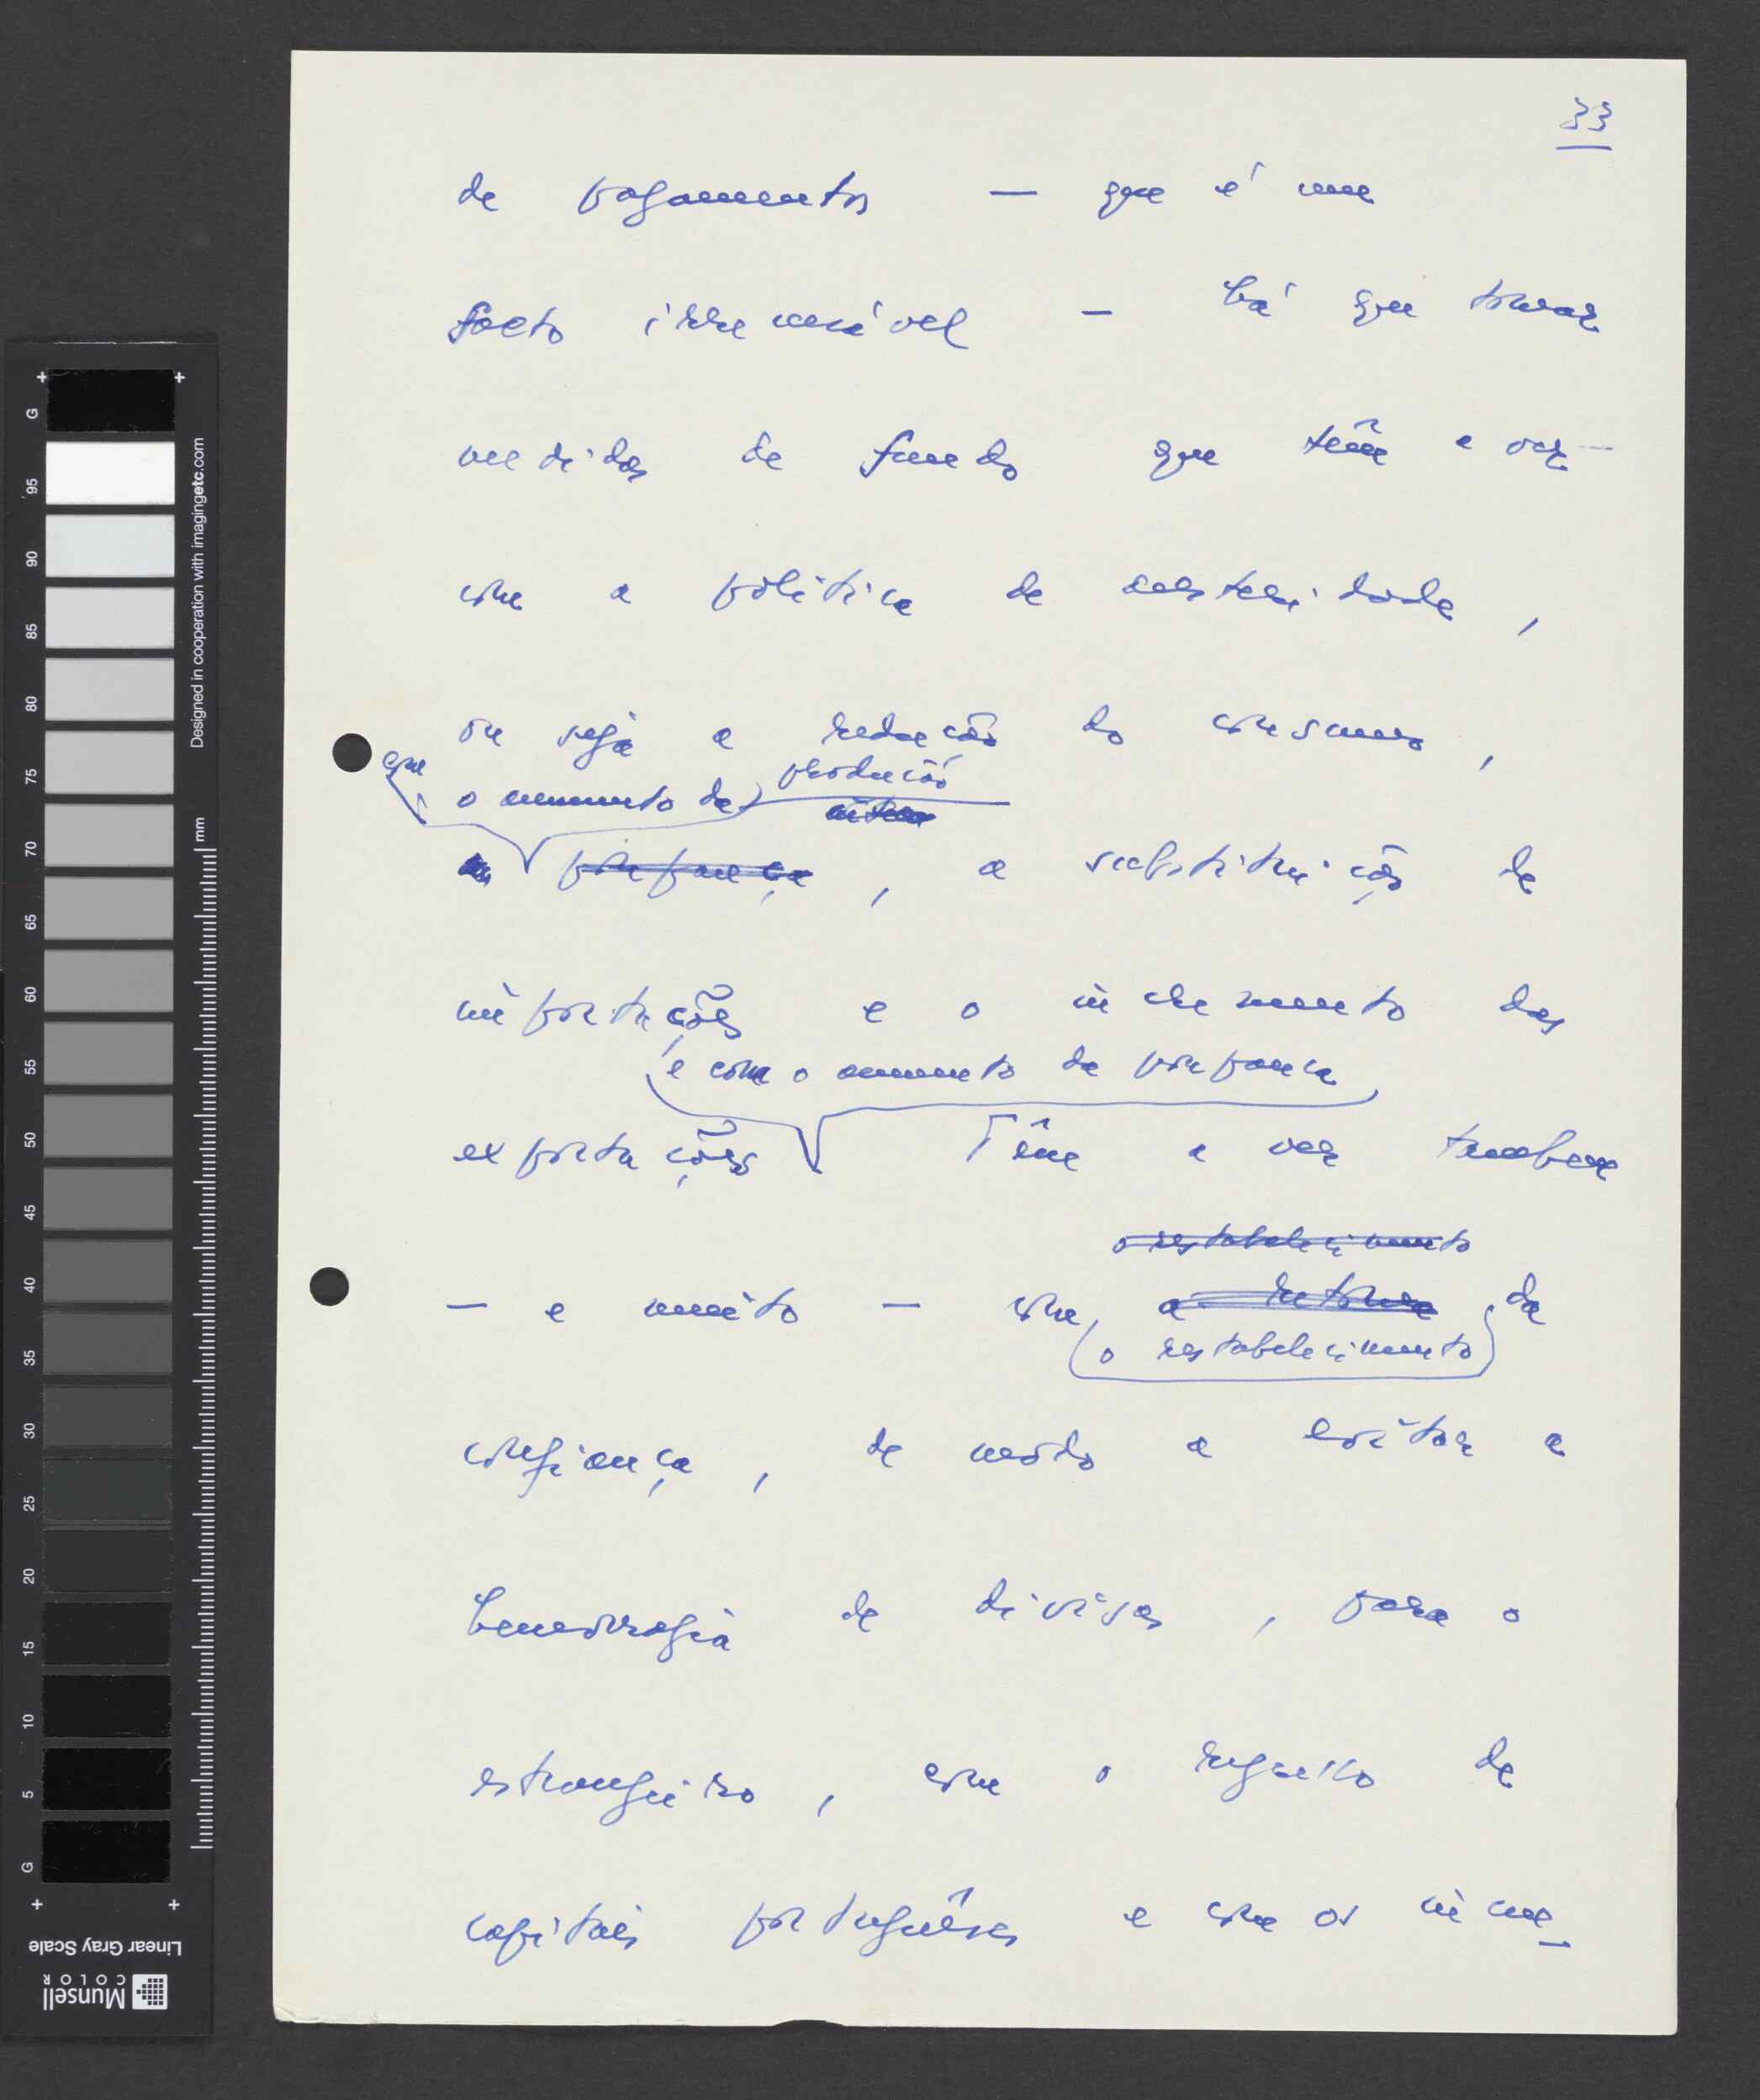 33
de pagamentos — que é um
facto irremovível — há que tomar
medidas de fundo que têm a ver
com a política de austeridade,
ou seja a redução do consumo,
o aumento da produção
poupança, a substituição de
importações e o incremento das
e com o aumento da poupança
exportações Têm a ver também
o restabelecimento
— e muito — com a retoma da
o restabelecimento
confiança, de modo a evitar a
hemorragia de divisas, para o
estrangeiro, com o regresso de
capitais portugueses e com os
G
95
90
85
80
75
70
65
60
55
50
45
40
35
30
25
20
15
10
5
G
Designed in cooperation with imagingetc.com
mm
Linear Gray Scale
Munsell
COLOR